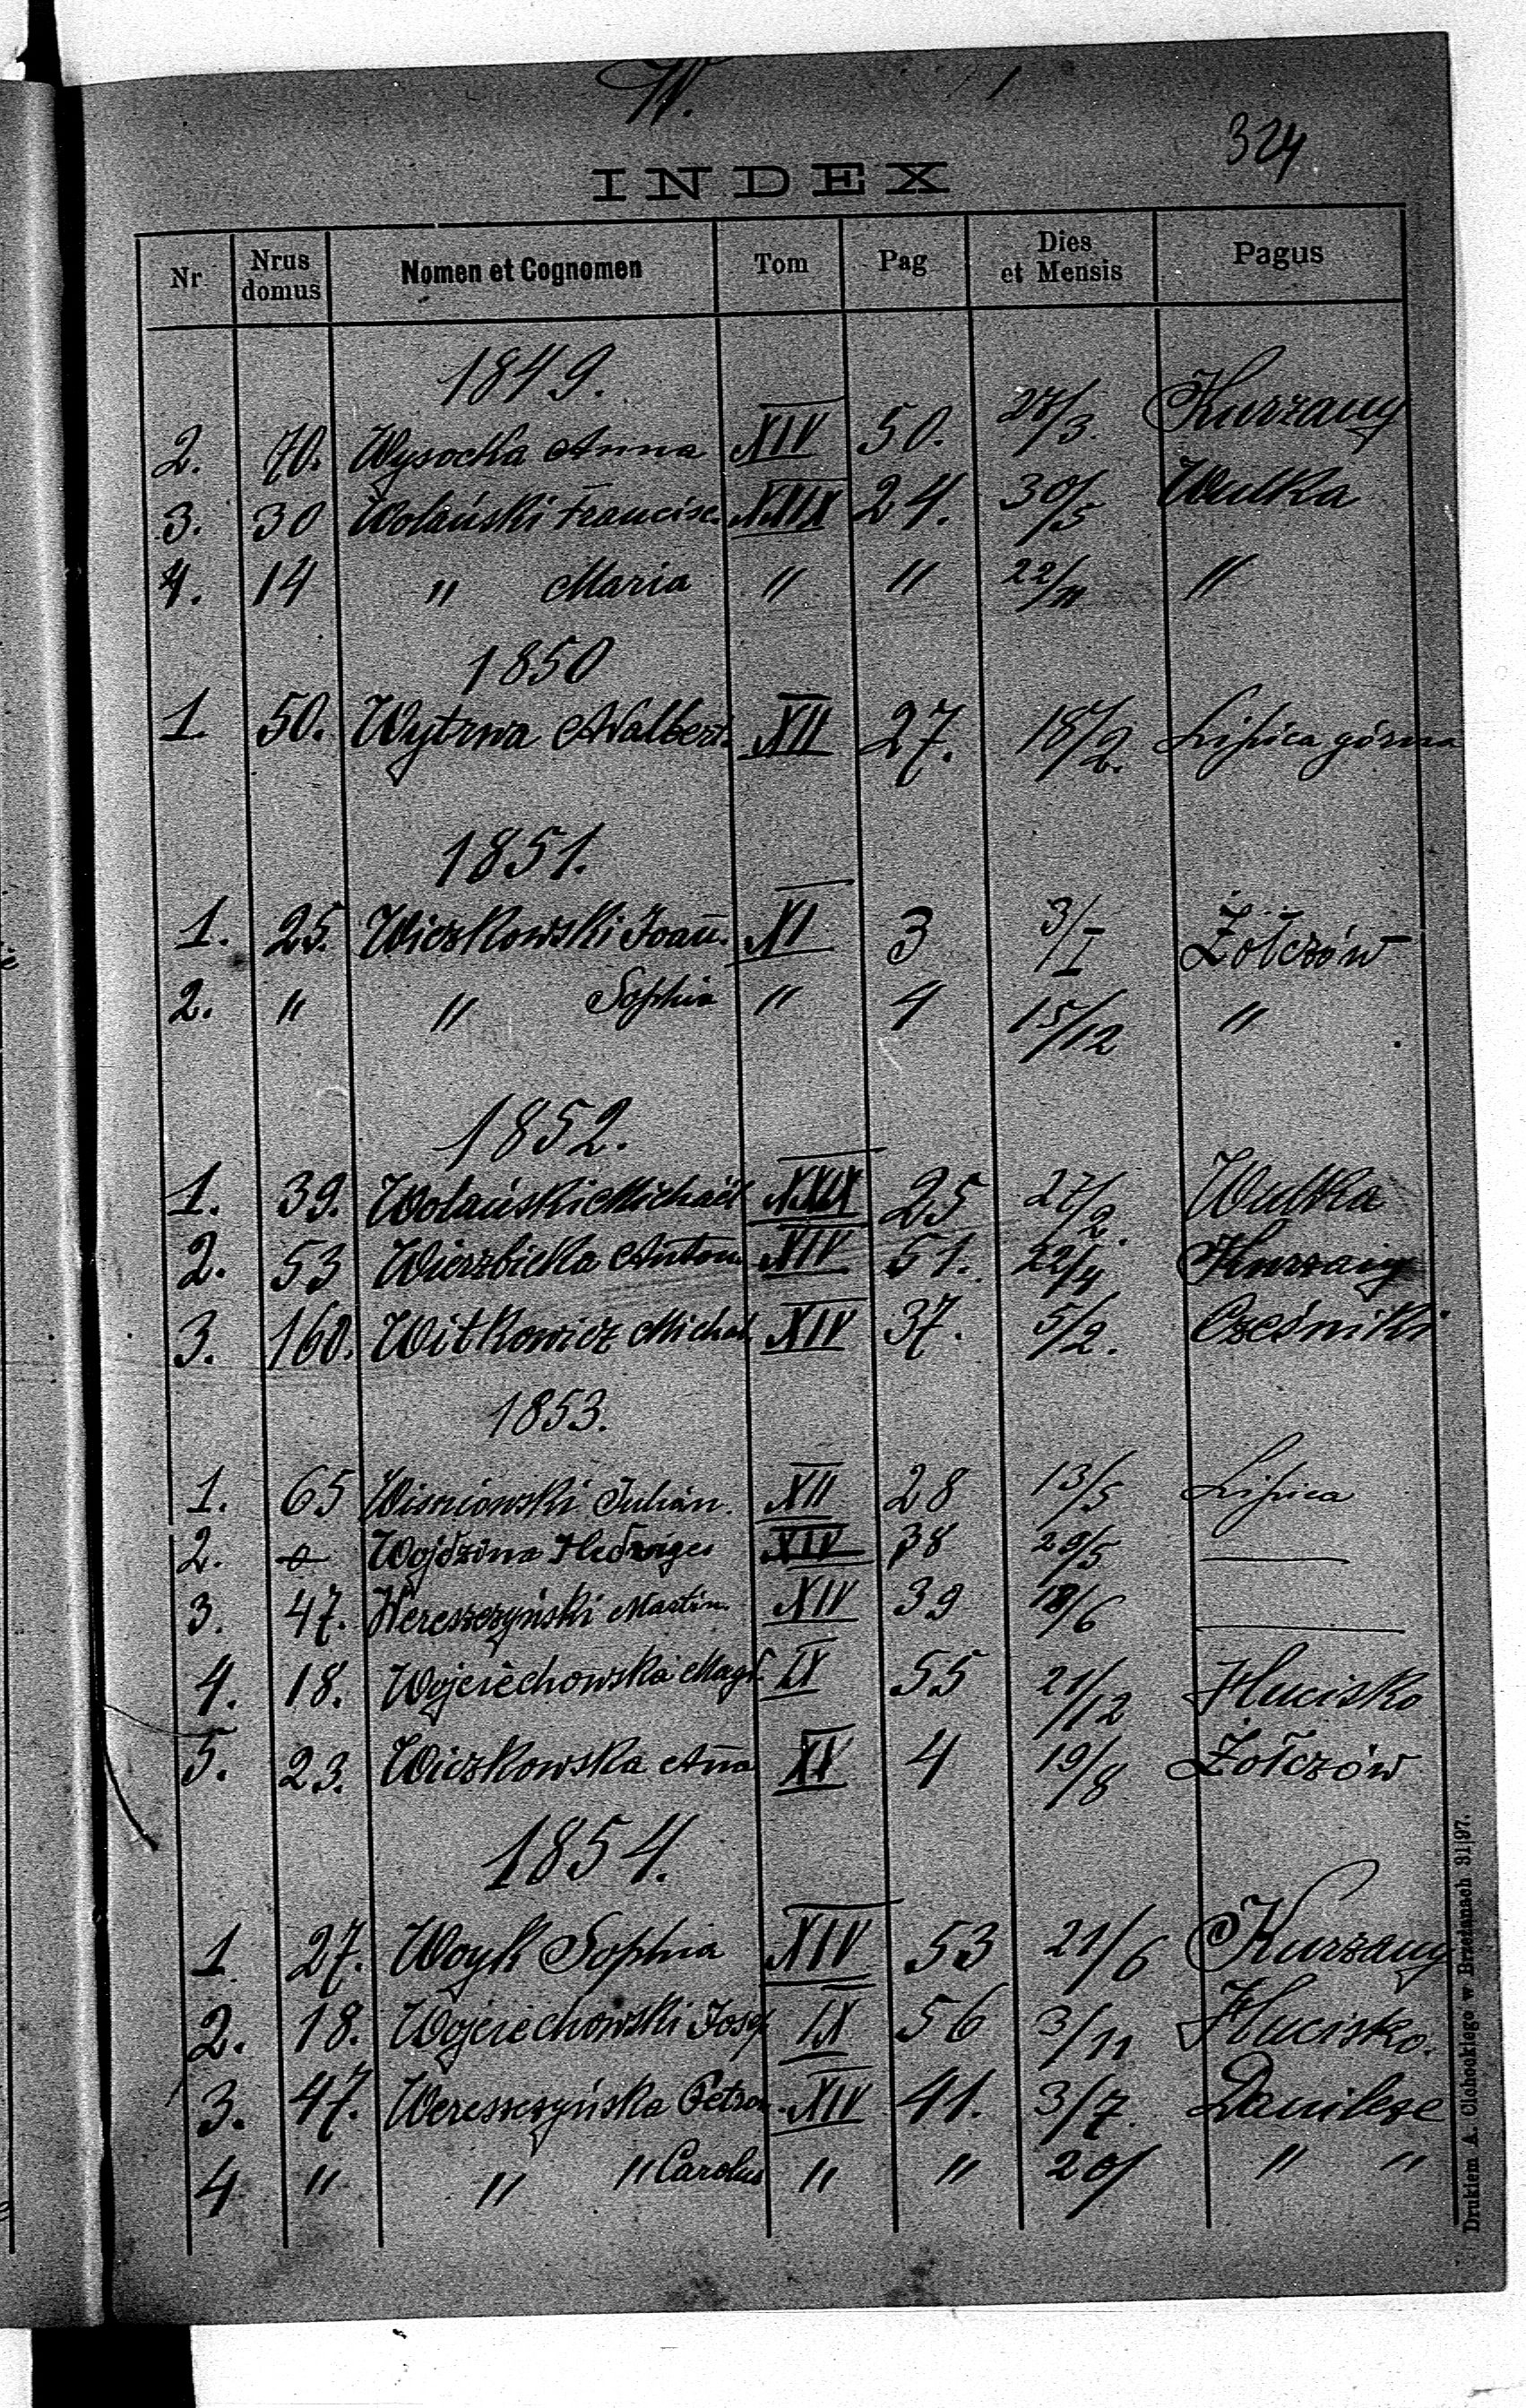 W.
324
INDEX
Nr Nrus domus Nomen et Cognomen Tom Pag Dies et Mensis Pagus
1849.
2. 70. Wysocka Anna XIV 50. 27/3. Kurzany
3. 30 Wolański Francisc. XXIX 24. 30/5 Wulka
4. 14 " Maria " " 22/11 "
1850
1. 50. Wytrwa Adalbert. XII 27. 18/2. Lipica górna
1851.
1. 25. Wiczkowski Joañ. XI 3 3/I Żołczów
2. " " Sophia " 4 15/12 "
1852.
1. 39. Wolański Michaël XXIX 25 27/2. Wulka
2. 53 Wierzbicka Anton. XIV 51. 22/4 Kurzany
3. 160. Witkowicz Michal. XIV 37. 5/2. Cześniki
1853.
1. 65 Wisniowski Julian. XII 28 13/5 Lipica
2. Wojdzina Hedwiges XIV 38 29/5 —
3. 47. Wereszczyński Martin. XIV 39 18/6 —
4. 18. Wojciechowska Magd. IX 55 21/12 Hucisko
5. 23. Wiczkowska Aña XI 4 19/8 Żołczów
1854.
1 27. Woyk Sophia XIV 53 21/6 Kurzany
2. 18. Wojciechowski Josef IX 56 3/11 Hucisko.
3. 47. Wereszczyńska Petron. XIV 41. 3/7. Danilcze
4 " " " Carolus " " 20/ " "
Drukiem A. Olchockiego w Brzeżanach 31|97.